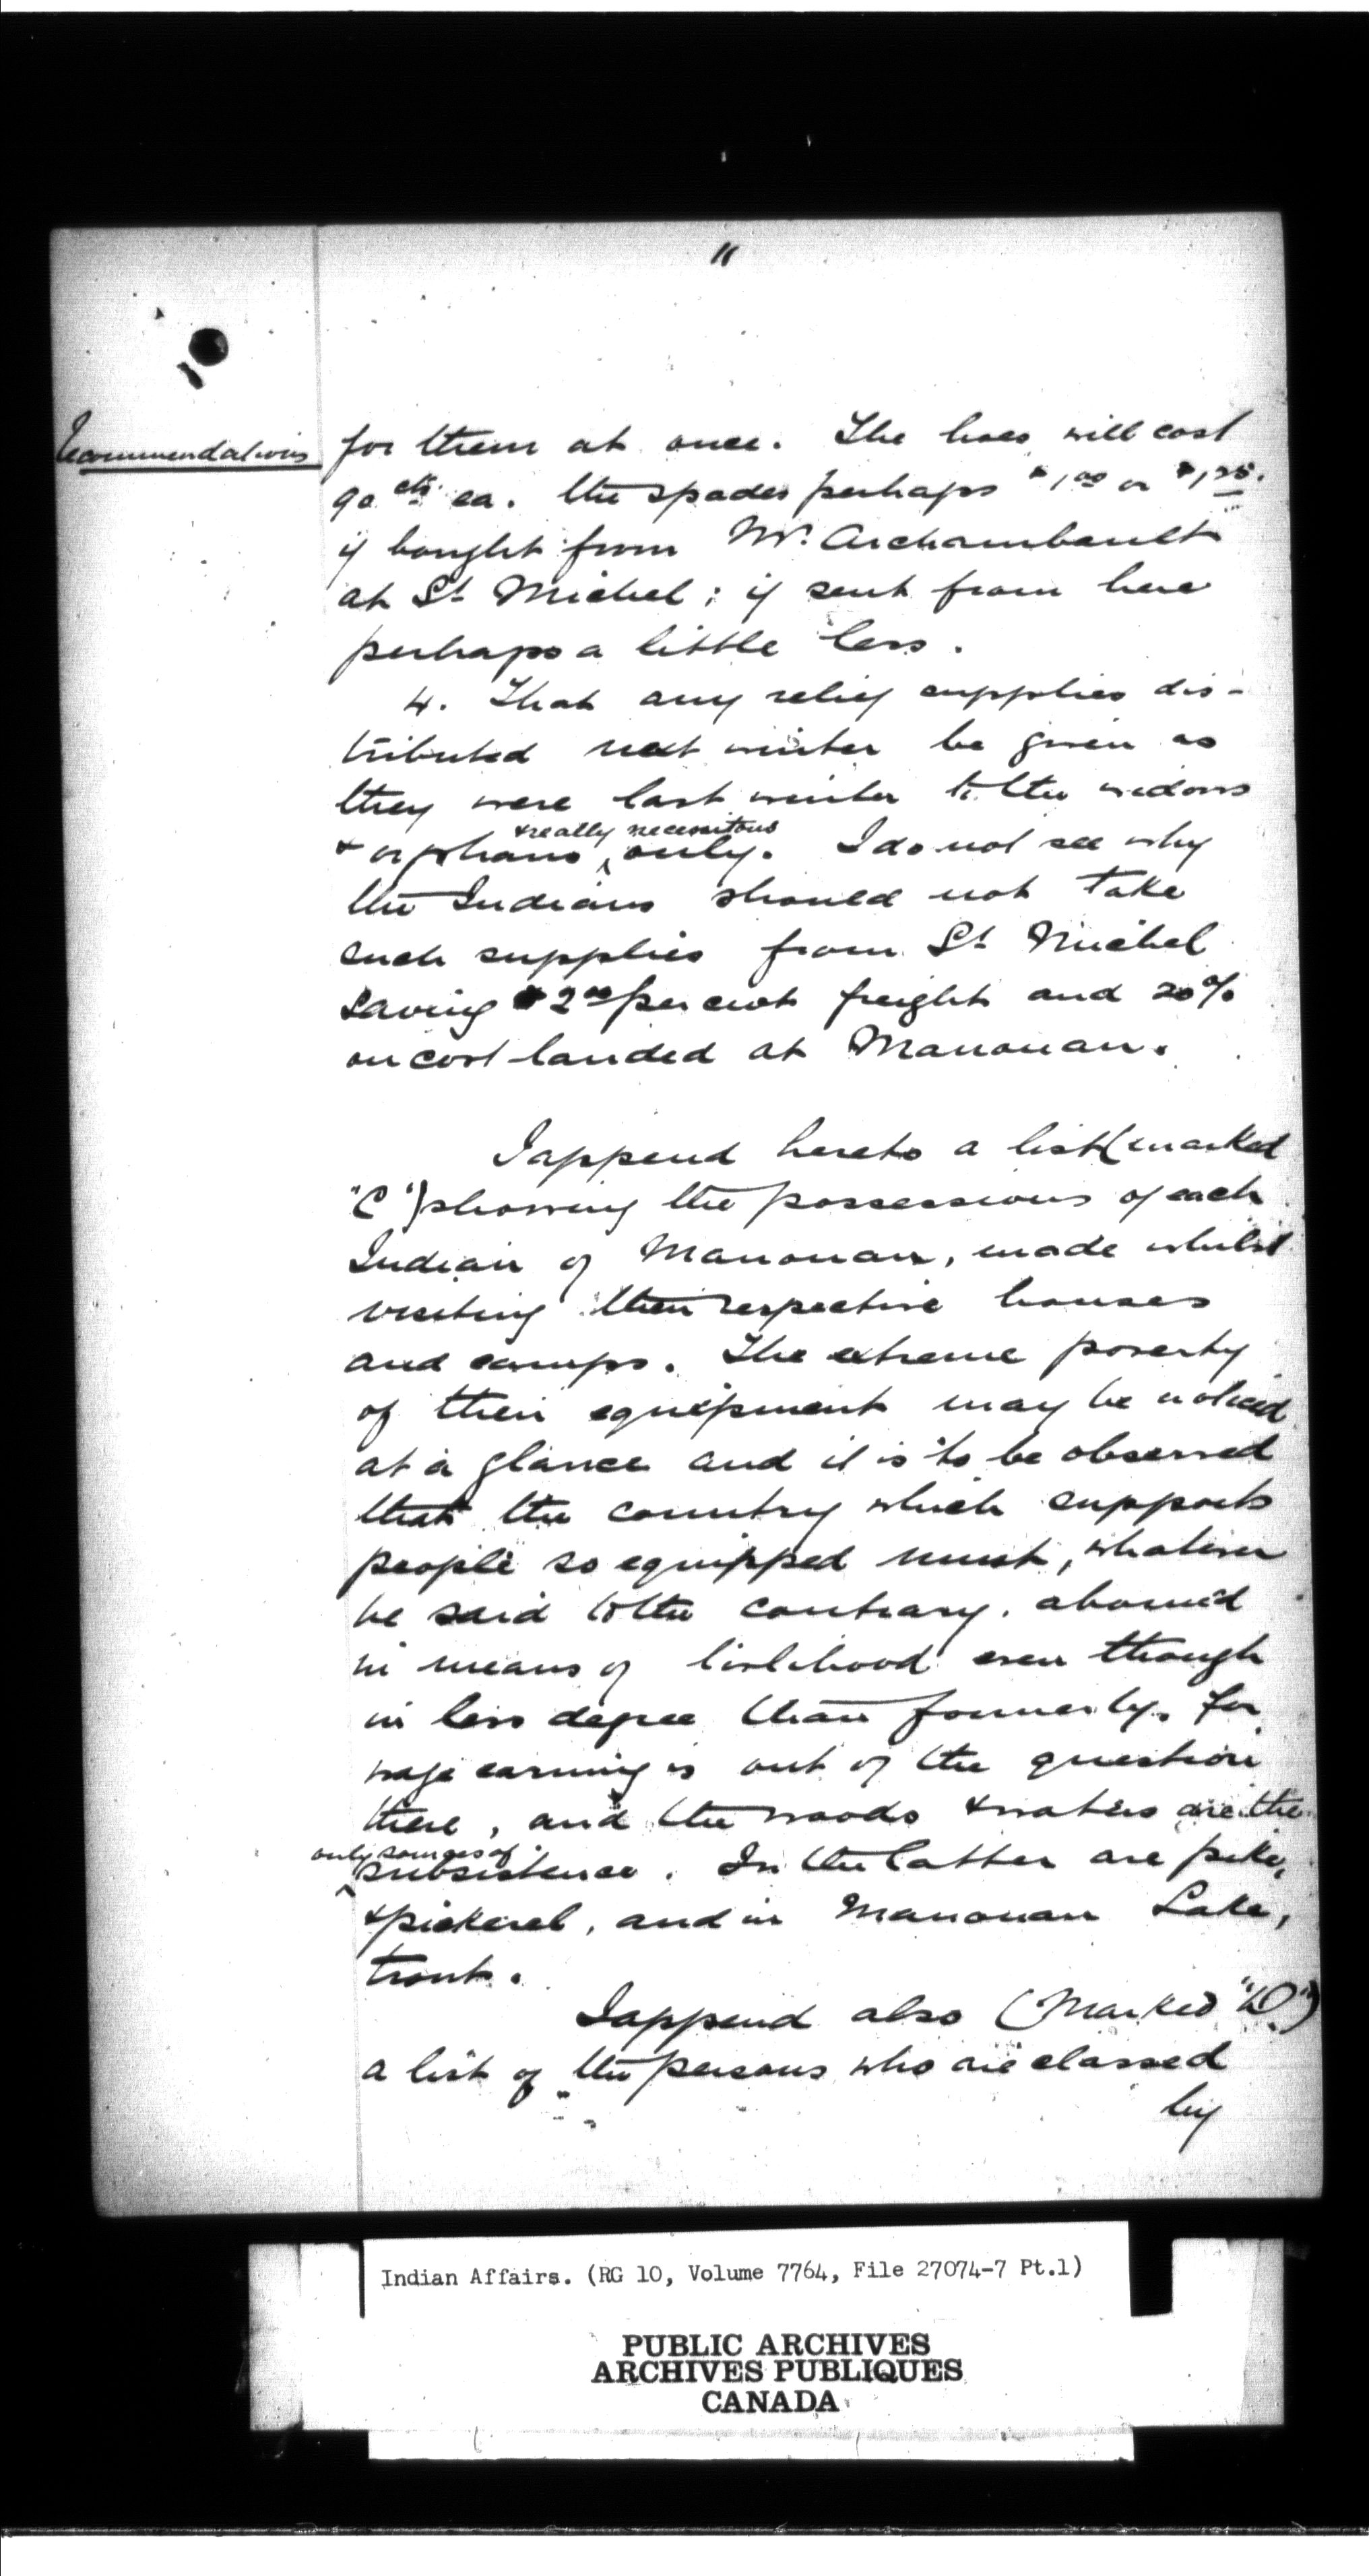 11
Recommendations
for them at once. The hoes will cost
90 cts ea. the spades perhaps $1.00 or $1.25.
if bought from Mr. Archambault
at St Michel; if sent from here
perhaps a little less.
4. That any relief supplies dis-
tributed next winter be given as
they were last winter to the widows
& really necessitous
& orphans ‸ only. I do not see why
the Indians should not take
such supplies from St Michel
saving $2.00 per cwt freight and 20%
on cost landed at Manouan.
I append hereto a list (marked
"C") showing the possessions of each
Indian of Manouan, made whilst
visiting their respective houses
and camps. The extreme poverty
of their equipment may be noticed
at a glance and it is to be observed
that the country which supports
people so equipped must, whatever
be said to the contrary, abound
in means of livlihood even though
in less degree than formerly, for
wage earning is out of the question
there, and the woods & waters are the
only sources of
‸ subsistence. In the latter are pike,
& pickerel, and in Manouan Lake,
trout.
I append also (Marked "D")
a list of the persons who are classed
by
Indian Affairs. (RG 10, Volume 7764, File 27074-7 Pt.1)
PUBLIC ARCHIVES
ARCHIVES PUBLIQUES
CANADA